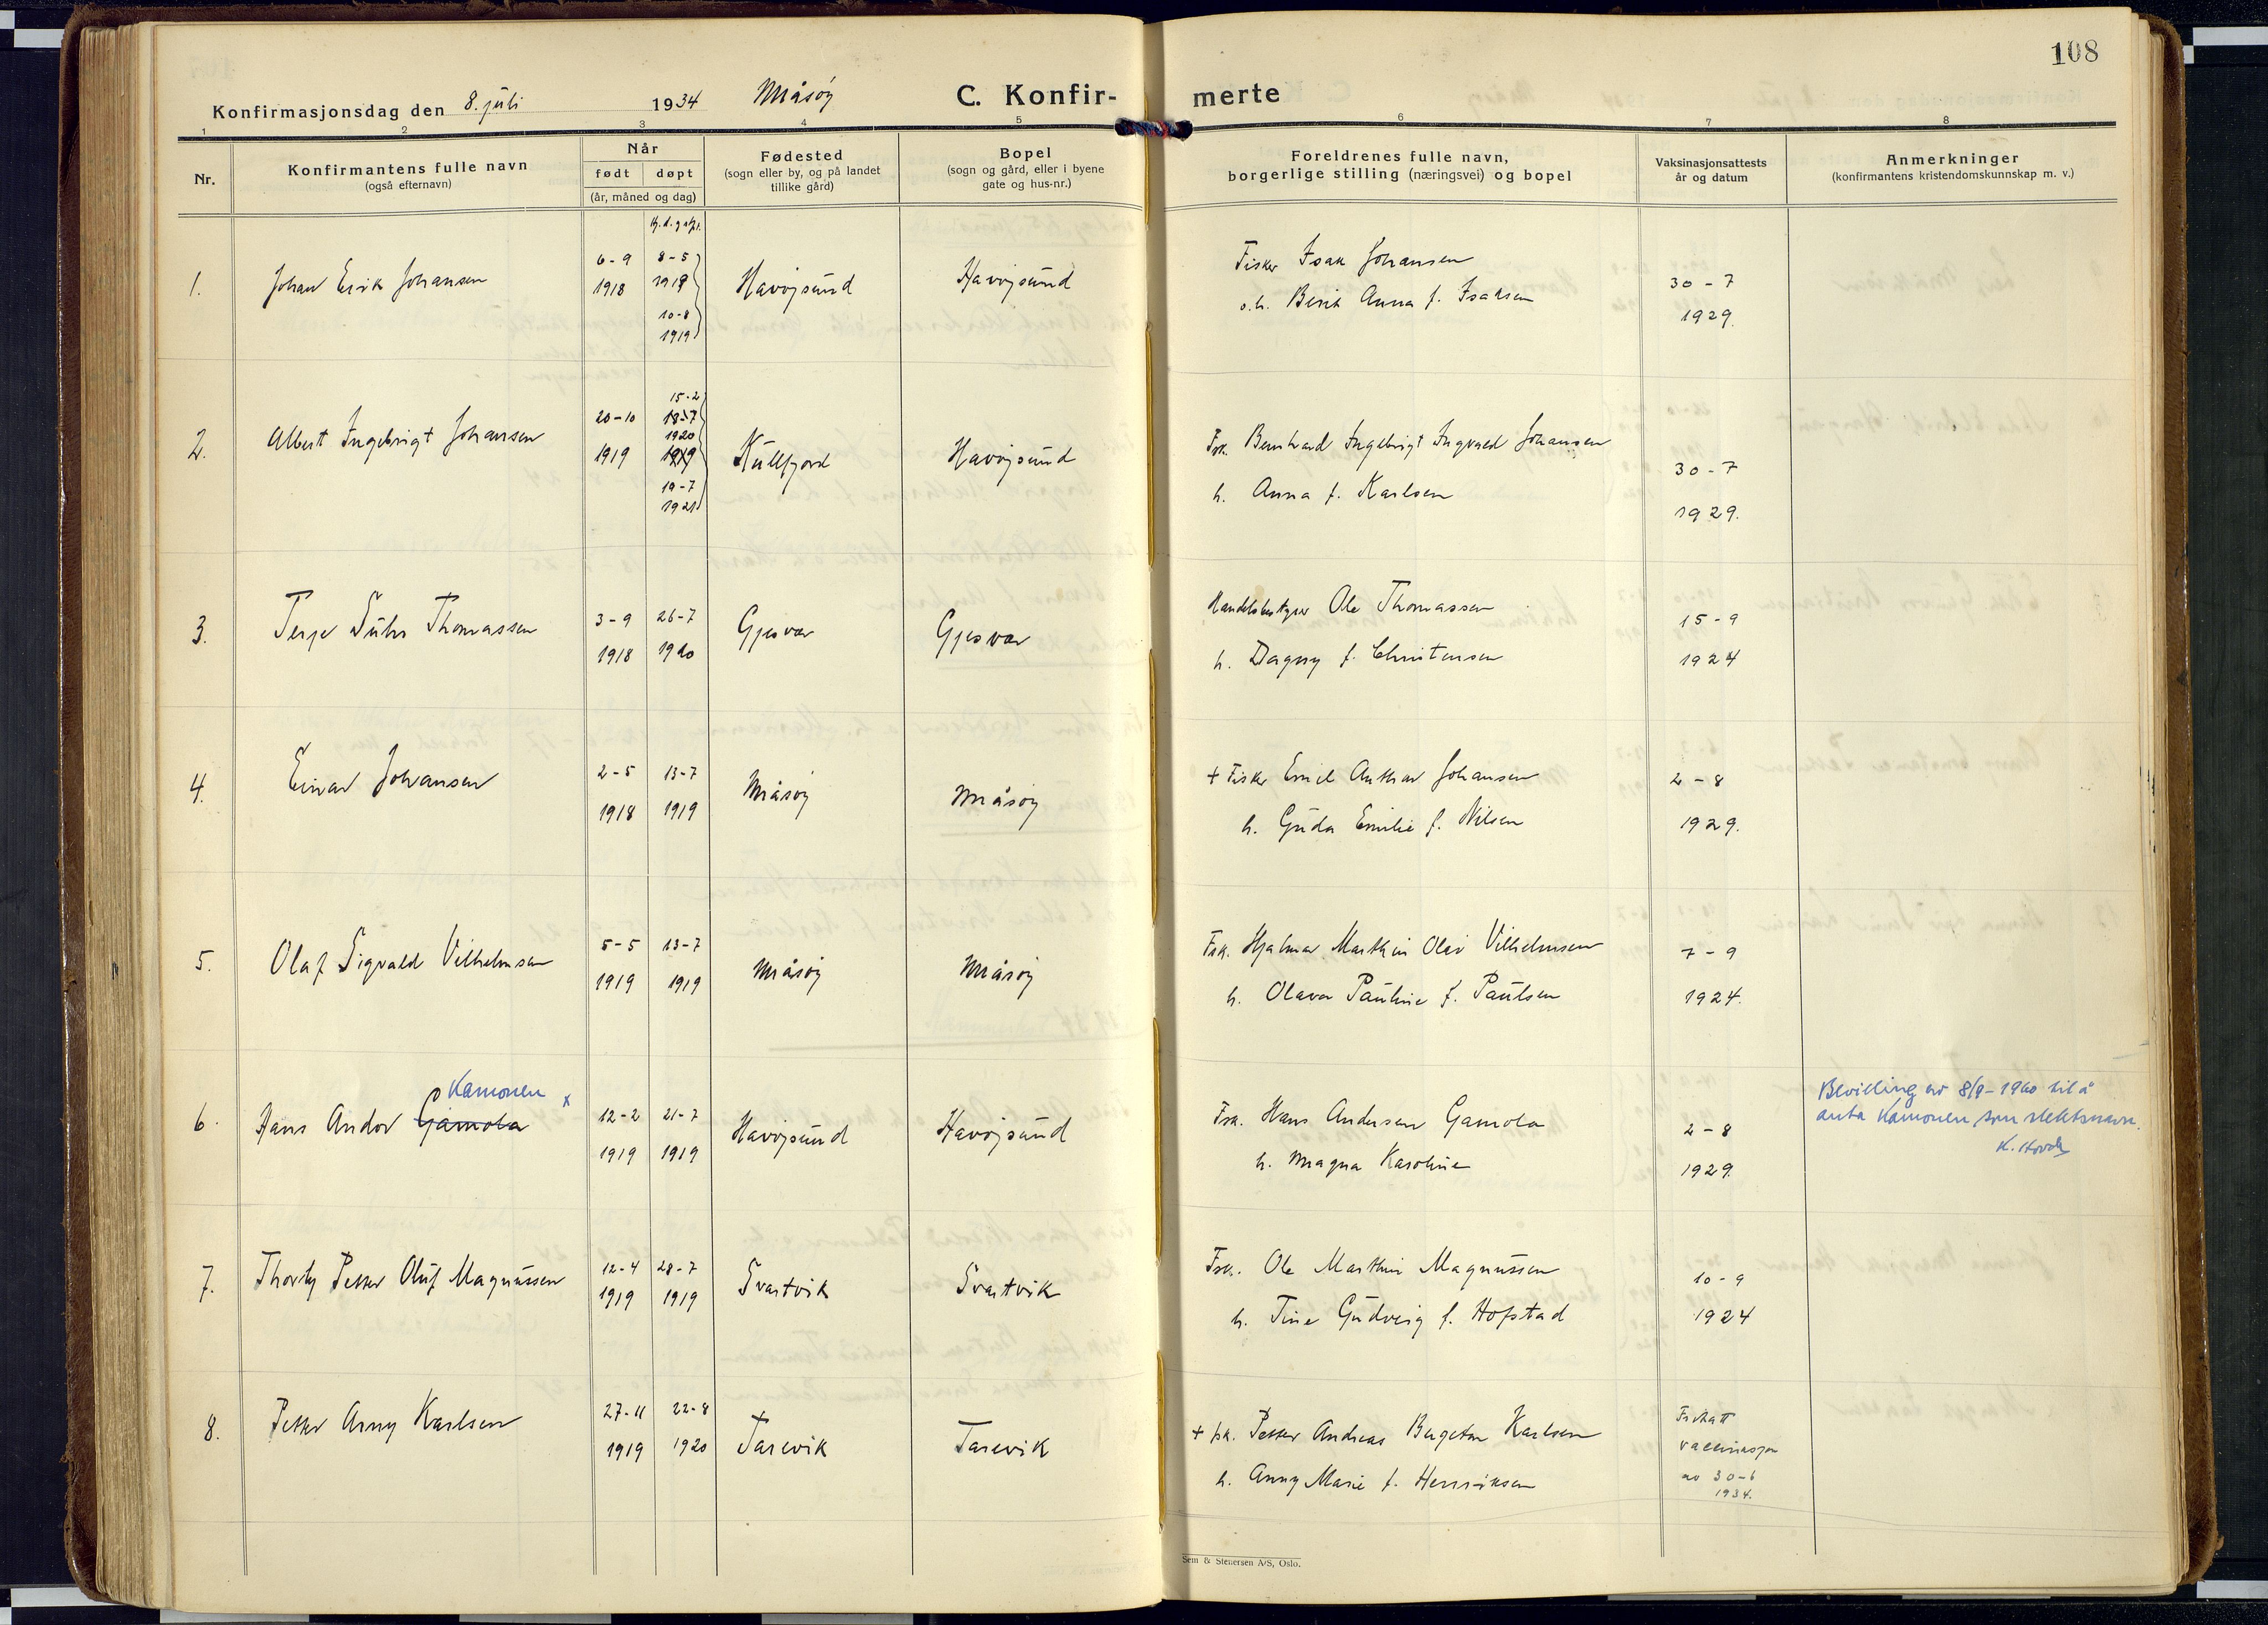 108
Konfirmasjonsdag den 8. juli 1934 Måsøy C. Konfir-merte
1 2 3 4 5 6 7 8
Nr.
Konfirmantens fulle navn
(også efternavn)
Når
født døpt
(år, måned og dag)
Fødested
(sogn eller by, og på landet
tillike gård)
Bopel
(sogn og gård, eller i byene
gate og hus-nr.)
Foreldrenes fulle navn,
borgerlige stilling (næringsvei) og bopel
Vaksinasjonsattests
år og datum
Anmerkninger
(konfirmantens kristendomskunnskap m. v.)
1. Johan Erik Johansen
6-9 1918
8-5 1919
10-8 1919
Havøysund Havøysund
Fisker Isak Johansen
o.h. Berit Anna f. Isaksen
30-7
1929.
2. Albert Ingebrigt Johansen
20-10 1919
15-2
1920
19-7
1921
Kullfjord Havøysund
Fisk. Bernhard Ingebrigt Ingvald Johansen
h. Anna f. Karlsen
30-7
1929.
3. Terje Suhr Thomassen
3-9 1918
26-7 1920
Gjesvær Gjesvær
Handelsbestyrer Ole Thomassen
h. Dagny f. Christensen
15-9
1924
4. Einar Johansen
2-5 1918
13-7 1919
Måsøy Måsøy
+ Fisker Emil Anthar Johansen
h. Guda Emilie f. Nilsen
2-8
1929.
5. Olaf Sigvald Vilhelmsen
5-5 1919
13-7 1919
Måsøy Måsøy
Fisk. Hjalmar Marthin Olai Vilhelmsen
h. Olava Pauline f. Paulsen
7-9
1924.
Kamonen x
6. Hans Andor Gamola
12-2 1919
21-7 1919
Havøysund Havøysund
Fisk. Hans Andersen Gamola
h. Magna Karoline
2-8
1929.
Bevilling av 8/9-1960 til å
anta Kamonen som slektsnavn.
7. Thorly Petter Oluf Magnussen
12-4 1919
28-7 1919
Svartvik Svartvik
Fisk. Ole Marthin Magnussen
h. Tine Gudveig f. Hofstad
10-9
1924
8. Petter Arny Karlsen
27-11 1919
22-8 1920
Tarevik Tarevik
+ fisk. Petter Andreas Bergeton Karlsen
h. Anny Marie f. Henriksen
Fritatt
vaccinasjon
av 30-6
1934.
Sem & Stenersen A/S, Oslo.